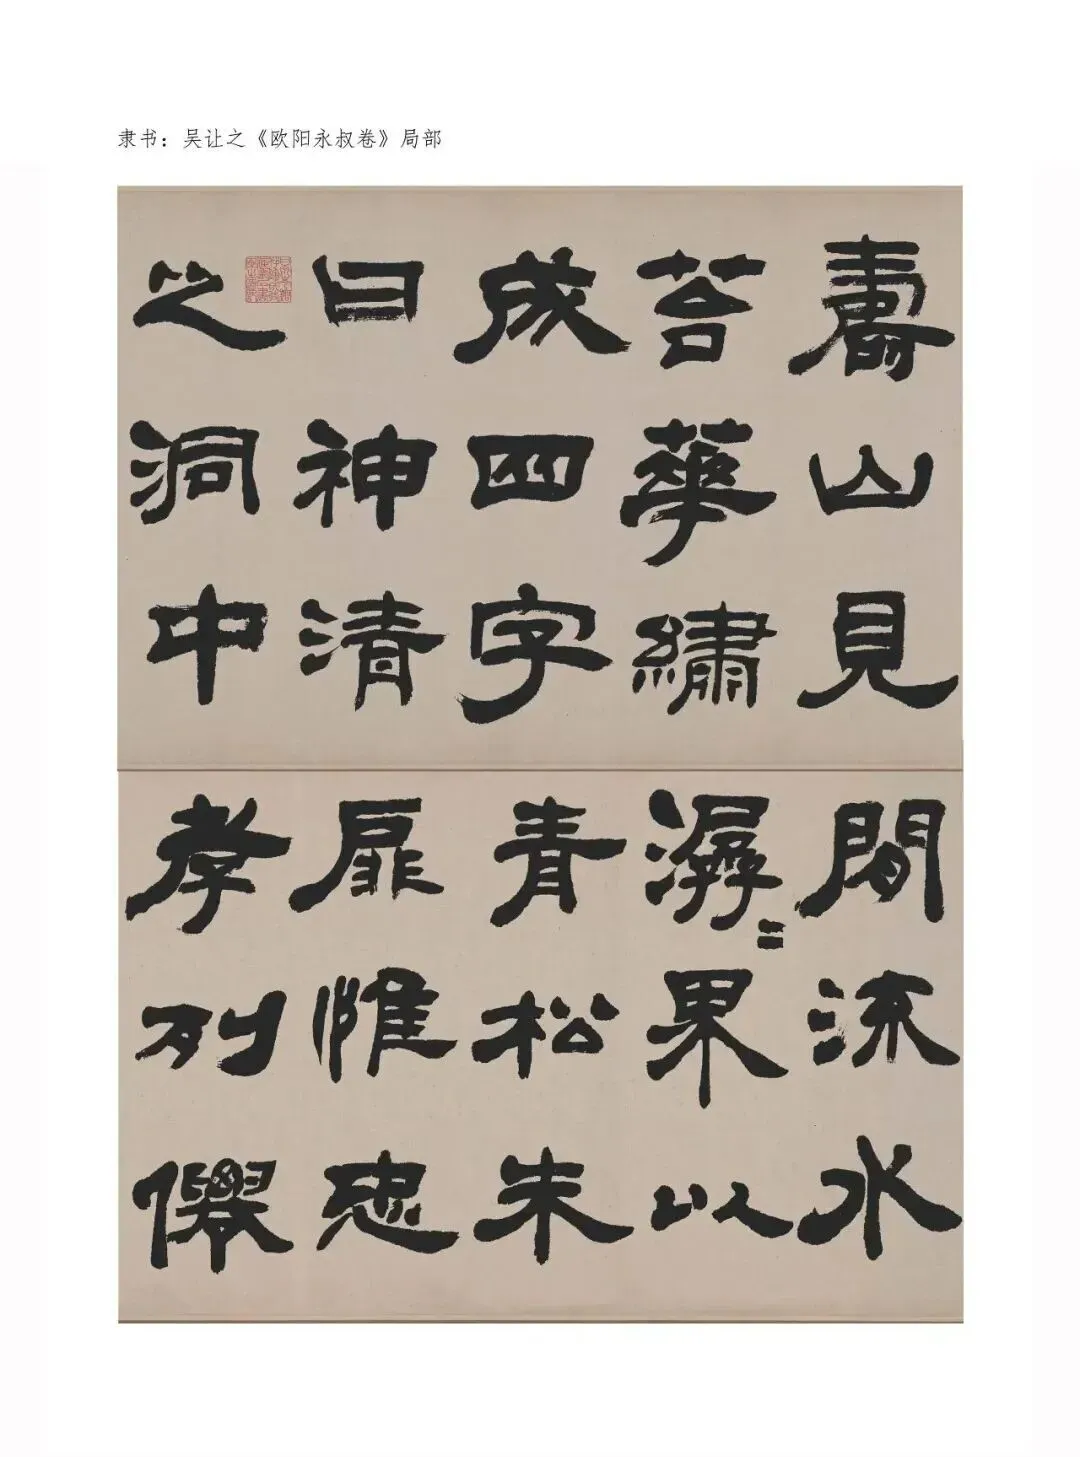 隶书：吴让之《欧阳永叔卷》局部
壽山見
苔華繡
成四字
曰神清
之洞中
閒流水
潺〻果以
青松朱
扉惟忠
孝列僊